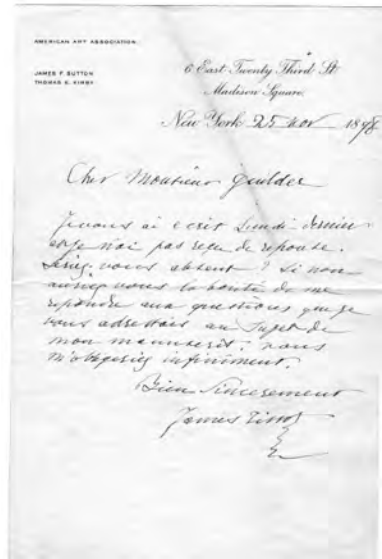 AMERICAN ART ASSOCIATION.
JAMES F. SUTTON
THOMAS E. KIRBY
6 East Twenty Third St.
Madison Square.
New York 25 nov 1898
Cher Monsieur Guilder
Je vous ai ecrit Lundi dernier
et je n'ai pas reçu de reponse.
Seriez vous absent ? Si non
auriez vous la bonté de me
repondre aux questions que je
vous adressais au Sujet de
mon manuscrit; vous
m'obligeriez infiniment.
Bien Sincerement
James Tissot